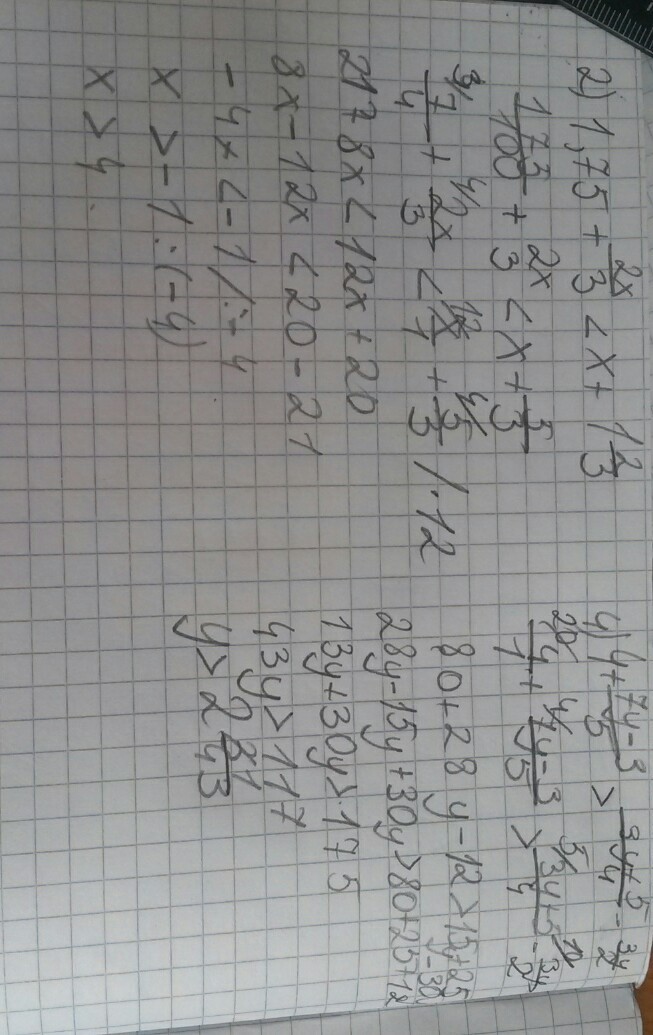 2) 1,75 + 2x/3 < x + 1 2/3
175/100 + 2x/3 < x + 5/3
3/ 7/4 + 4/ 2x/3 < 12/ x/1 + 4/ 5/3 /·12
21+8x < 12x + 20
8x - 12x < 20 - 21
-4x < -1 /:-4
x > -1 : (-4)
x > 4
4) 4 + 7y-3/5 > 3y+5/4 - 3y/2
20/ 4/1 + 4/ 7y-3/5 > 5/ 3y+5/4 - 10/ 3y/2
80 + 28y - 12 > 15y + 25 y - 30
28y - 15y + 30y > 80 + 25 + 12
13y + 30y > 175
43y > 117
y > 2 31/43